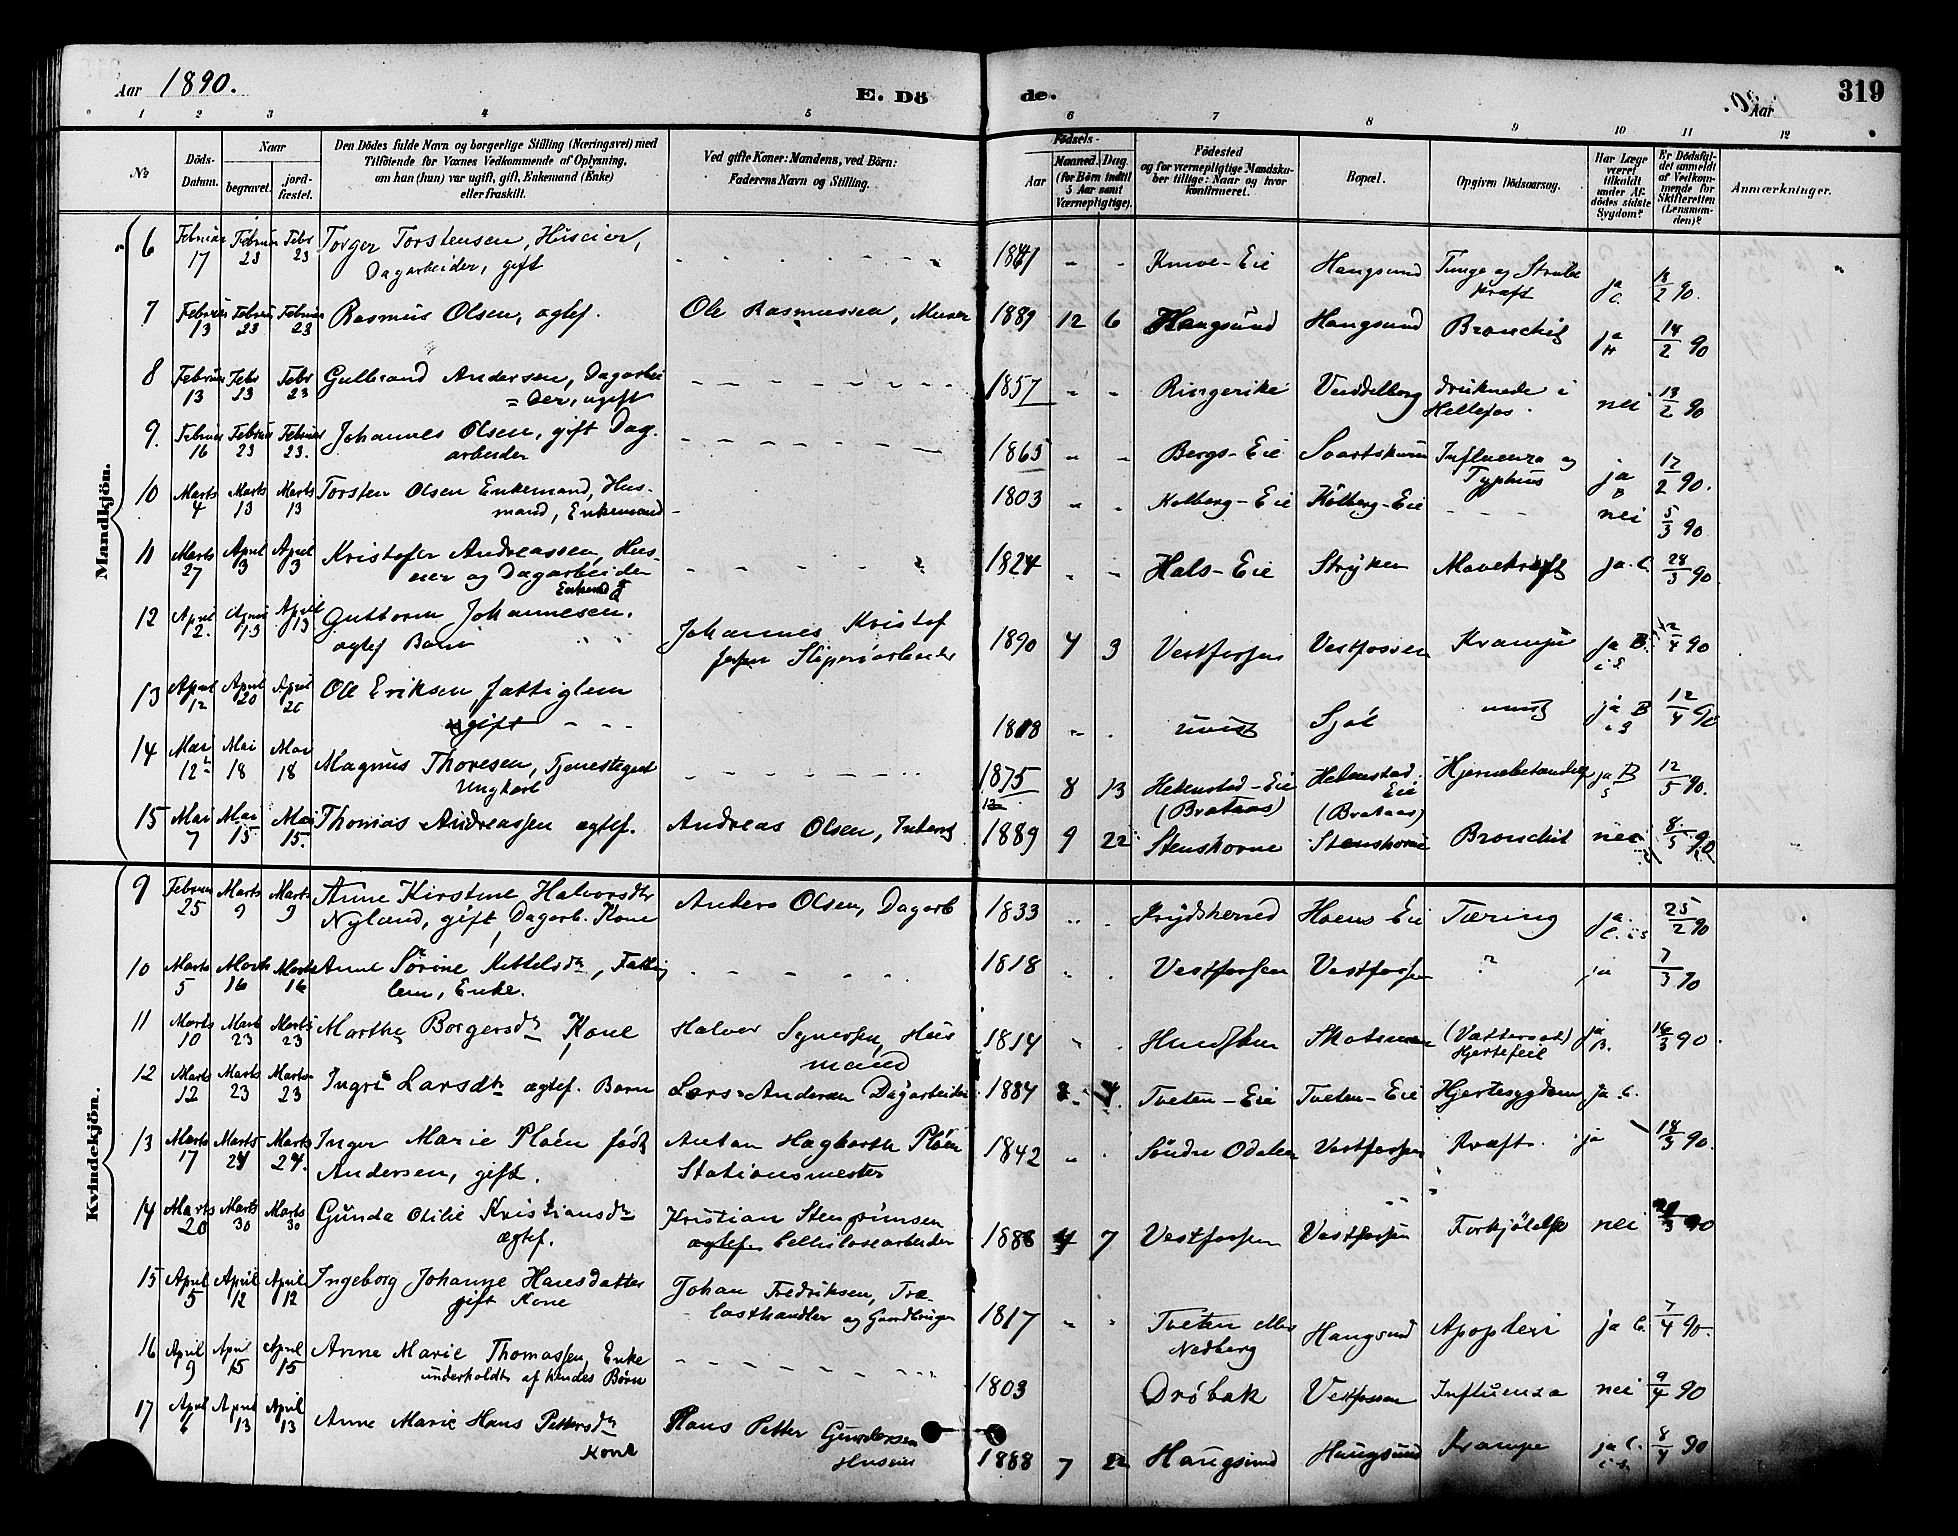 Aar 1890.
E. Döde.
Aar
319
1 2 3 4 5 6 7 8 9 10 11 12
No
Döds-Datum.
Naar
begravet.
jordfæstet.
Den Dödes fulde Navn og borgerlige Stilling (Næringsvei) med Tilföiende for Voxnes Vedkommende af Oplysning, om han (hun) var ugift, gift, Enkemand (Enke) eller fraskilt.
Ved gifte Koner: Mandens, ved Börn: Faderens Navn og Stilling.
Födsels-
Aar
Maaned. Dag.
(for Börn indtil 5 Aar samt Værnepligtige).
Födested og for værnepligtige Mandskaber tillige: Naar og hvor konfirmeret.
Bopæl.
Opgiven Dödsaarsag.
Har Læge været tilkaldt under Afdödes sidste Sygdom?
Er Dödsfaldet anmeldt af Vedkommende for Skifteretten (Lensmanden)?
Anmærkninger.
Mandkjön.
6 Februar 17 Februar 23 Febr 23 Torger Torstensen, Huseier, Dagarbeider, gift 1841 Haugsund Tunge og Strube kræft ja C. 18/2 90.
7 Februar 13 Februar 23 Februar 23 Rasmus Olsen, ægtef. Ole Rasmussen, Murer 1889 12 6 Haugsund Haugsund Bronchit ja H 14/2 90
8 Februar 13 Febr 23 Gulbrand Andersen, Dagarbeider, ugift 1857 Ringerike Vendelborg druknede i Hellefos. nei 13/2 90
9. Februar 16 Februar 23 Februar 23. Johannes Olsen, gift Dagarbeider 1863 Bergs-Eie Influenza og Typhus ja B 17/2 90.
10 Marts 4 Marts 13 Marts 13 Torsten Olsen Enkemand, Husmand, Enkemand 1803 Kolberg-Eie Kolberg-Eie nei 5/3 90
11 Marts 27 April 3 April 3 Kristofer Andreassen, Huseier og Dagarbeider Enkemd 1824 Hals-Eie Stryken Mavekræft ja C. 28/3 90
12 April 2. April 13 April 13 Guttorm Johannesen. ægtef Barn Johannes Kristoffersen Sliperiarbeider 1890 4 3 Vestfossen Vestfossen Krampe ja B. 2/4 90
13 April 12 April 20 April 20 Ole Eriksen fattiglem ugift 1818 uvist Sjøl uvist ja B 12/4 90
14 Mai 12 Mai 18 Mai 18 Magnus Thoresen, Tjenestegut Ungkarl 1875 8 13 Hekenstad-Eie (Brataas) Hekenstad Eie (Brataas) Hjernebetændelse ja B 12/5 90.
15 Mai 7 Mai 15 Mai 15. Thomas Andreassen ægtef. Andreas Olsen, 1889 9 22 Stenshorne Stenshorne Bronchit nei 8/5 90
Kvindekjön.
9 Februar 25 Marts 9 Marts 9 Anne Kirstine Halvorsdtr Nyland, gift, Dagarb. Kone Anders Olsen, Dagarb 1833 Krydsherred Hoens Eie Tæring ja. C. 25/2 90
10 Marts 5 Marts 16 Marts 16 Anne Sørine Kittelsdtr, Fattiglem, Enke. 1818 Vestfossen Vestfossen ? ja 7/3 90
11 Marts 10 Marts 23 Marts 23 Marthe Borgersdtr Kone Halvor Husmand 1814 (Vattersot) Hjertefeil ja B. 16/3 90.
12 Marts 12 Marts 23 Marts 23 Ingri Larsdtr ægtef. Barn Lars Andersen Dagarbeider 1884 Tveten-Eie Tveten-Eie Hjertesygdom ja C.
13 Marts 17 Marts 24 Marts 24. Inger Marie Ploén født Andersen, gift. Anton Hagbarth Ploén Stationsmester 1842 Søndre Odalen Vestfossen Kræft. ja 18/3 90.
14 Marts 20 Marts 30 Marts 30 Gunda Otilie Kristiansdtr ægtef. Kristian Stengrimsen ægtef. Cellulosearbeider 1888 4 7 Vestfossen Vestfossen Forkjölelse nei
15 April 5 April 12 April 12 Ingeborg Johanne Hansdatter gift Kone Johan Fredriksen, Trælasthandler og Gaardbruger 1817 Tveten eller Nedberg Haugsund Apoplexi ja C. 7/4 90.
16 April 9 April 15 April 15 Anne Marie Thomassen, Enke underholdt af hendes Børn 1803 Drøbak Vestfossen Influensa nei 9/4 90
17 April 6 April 13 April 13 Anne Marie Hans Pettersdtr Kone Hans Petter Gundersen Huseier 1888 7 22 Haugsund Haugsund Krampe ja C. 8/4 90